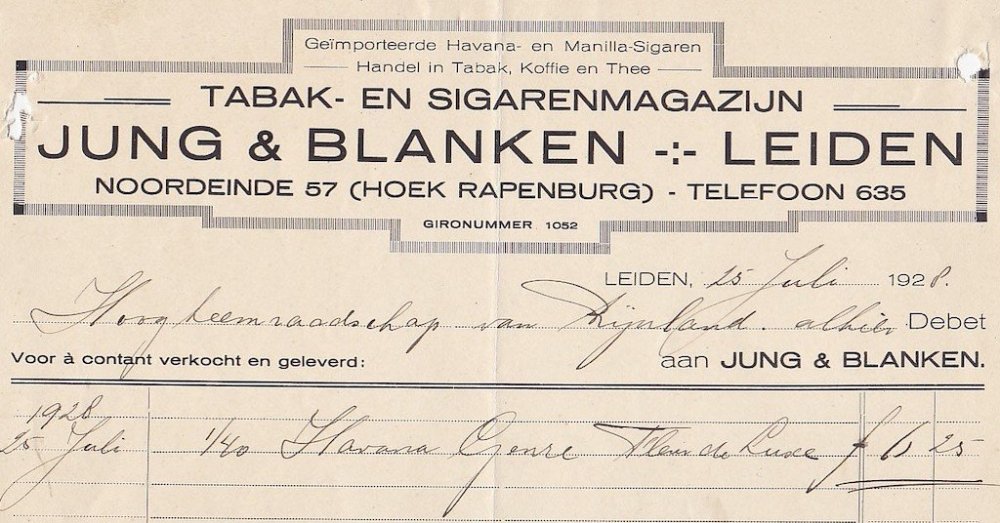 Geïmporteerde Havana- en Manilla-Sigaren
Handel in Tabak, Koffie en Thee
TABAK- EN SIGARENMAGAZIJN
JUNG & BLANKEN -:- LEIDEN
NOORDEINDE 57 (HOEK RAPENBURG) - TELEFOON 635
GIRONUMMER 1052
LEIDEN, 25 Juli 1928.
Hoogheemraadschap van Rijnland. alhier Debet
Voor à contant verkocht en geleverd: aan JUNG & BLANKEN.
1928
25 Juli 1/40 Havana Genre Fleur de Luxe f 6 25